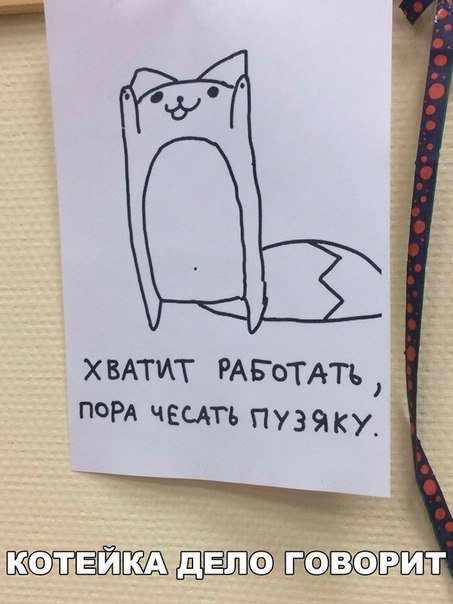 ХВАТИТ РАБОТАТЬ,
ПОРА ЧЕСАТЬ ПУЗЯКУ.
КОТЕЙКА ДЕЛО ГОВОРИТ